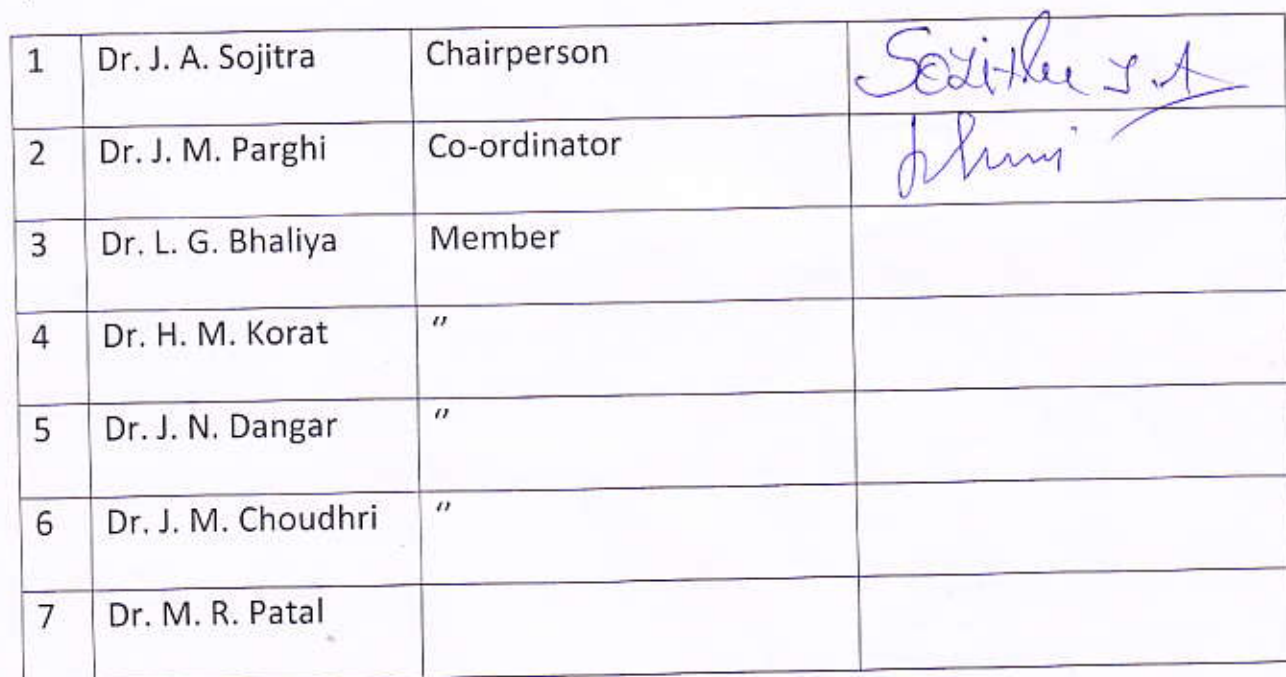 1 Dr. J. A. Sojitra Chairperson Sojitra J. A
2 Dr. J. M. Parghi Co-ordinator
3 Dr. L. G. Bhaliya Member
4 Dr. H. M. Korat "
5 Dr. J. N. Dangar "
6 Dr. J. M. Choudhri "
7 Dr. M. R. Patal